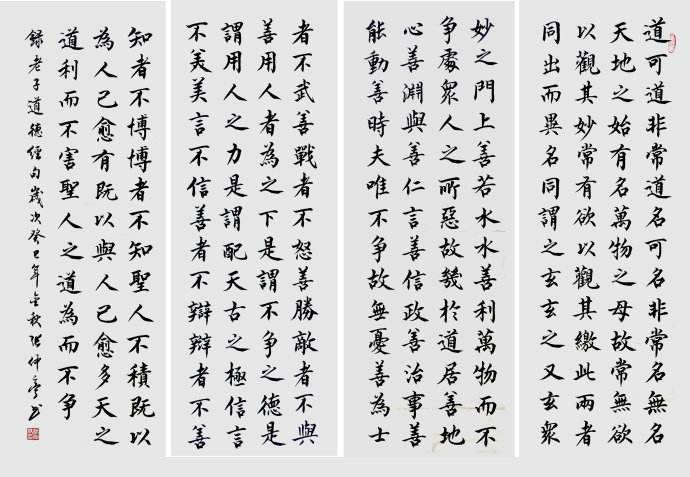 道可道非常道名可名非常名無名
天地之始有名萬物之母故常無欲
以觀其妙常有欲以觀其繳此兩者
同出而異名同謂之玄玄之又玄衆
妙之門上善若水水善利萬物而不
争處衆人之所惡故幾於道居善地
心善淵與善仁言善信政善治事善
能動善時夫唯不争故無憂善為士
者不武善戰者不怒善勝敵者不與
善用人者為之下是謂不争之德是
謂用人之力是謂配天古之極信言
不美美言不信善者不辯辯者不善
知者不博博者不知聖人不積既以
為人己愈有既以與人己愈多天之
道利而不害聖人之道為而不争
錄老子道德經句歲次癸巳年金秋张仲書